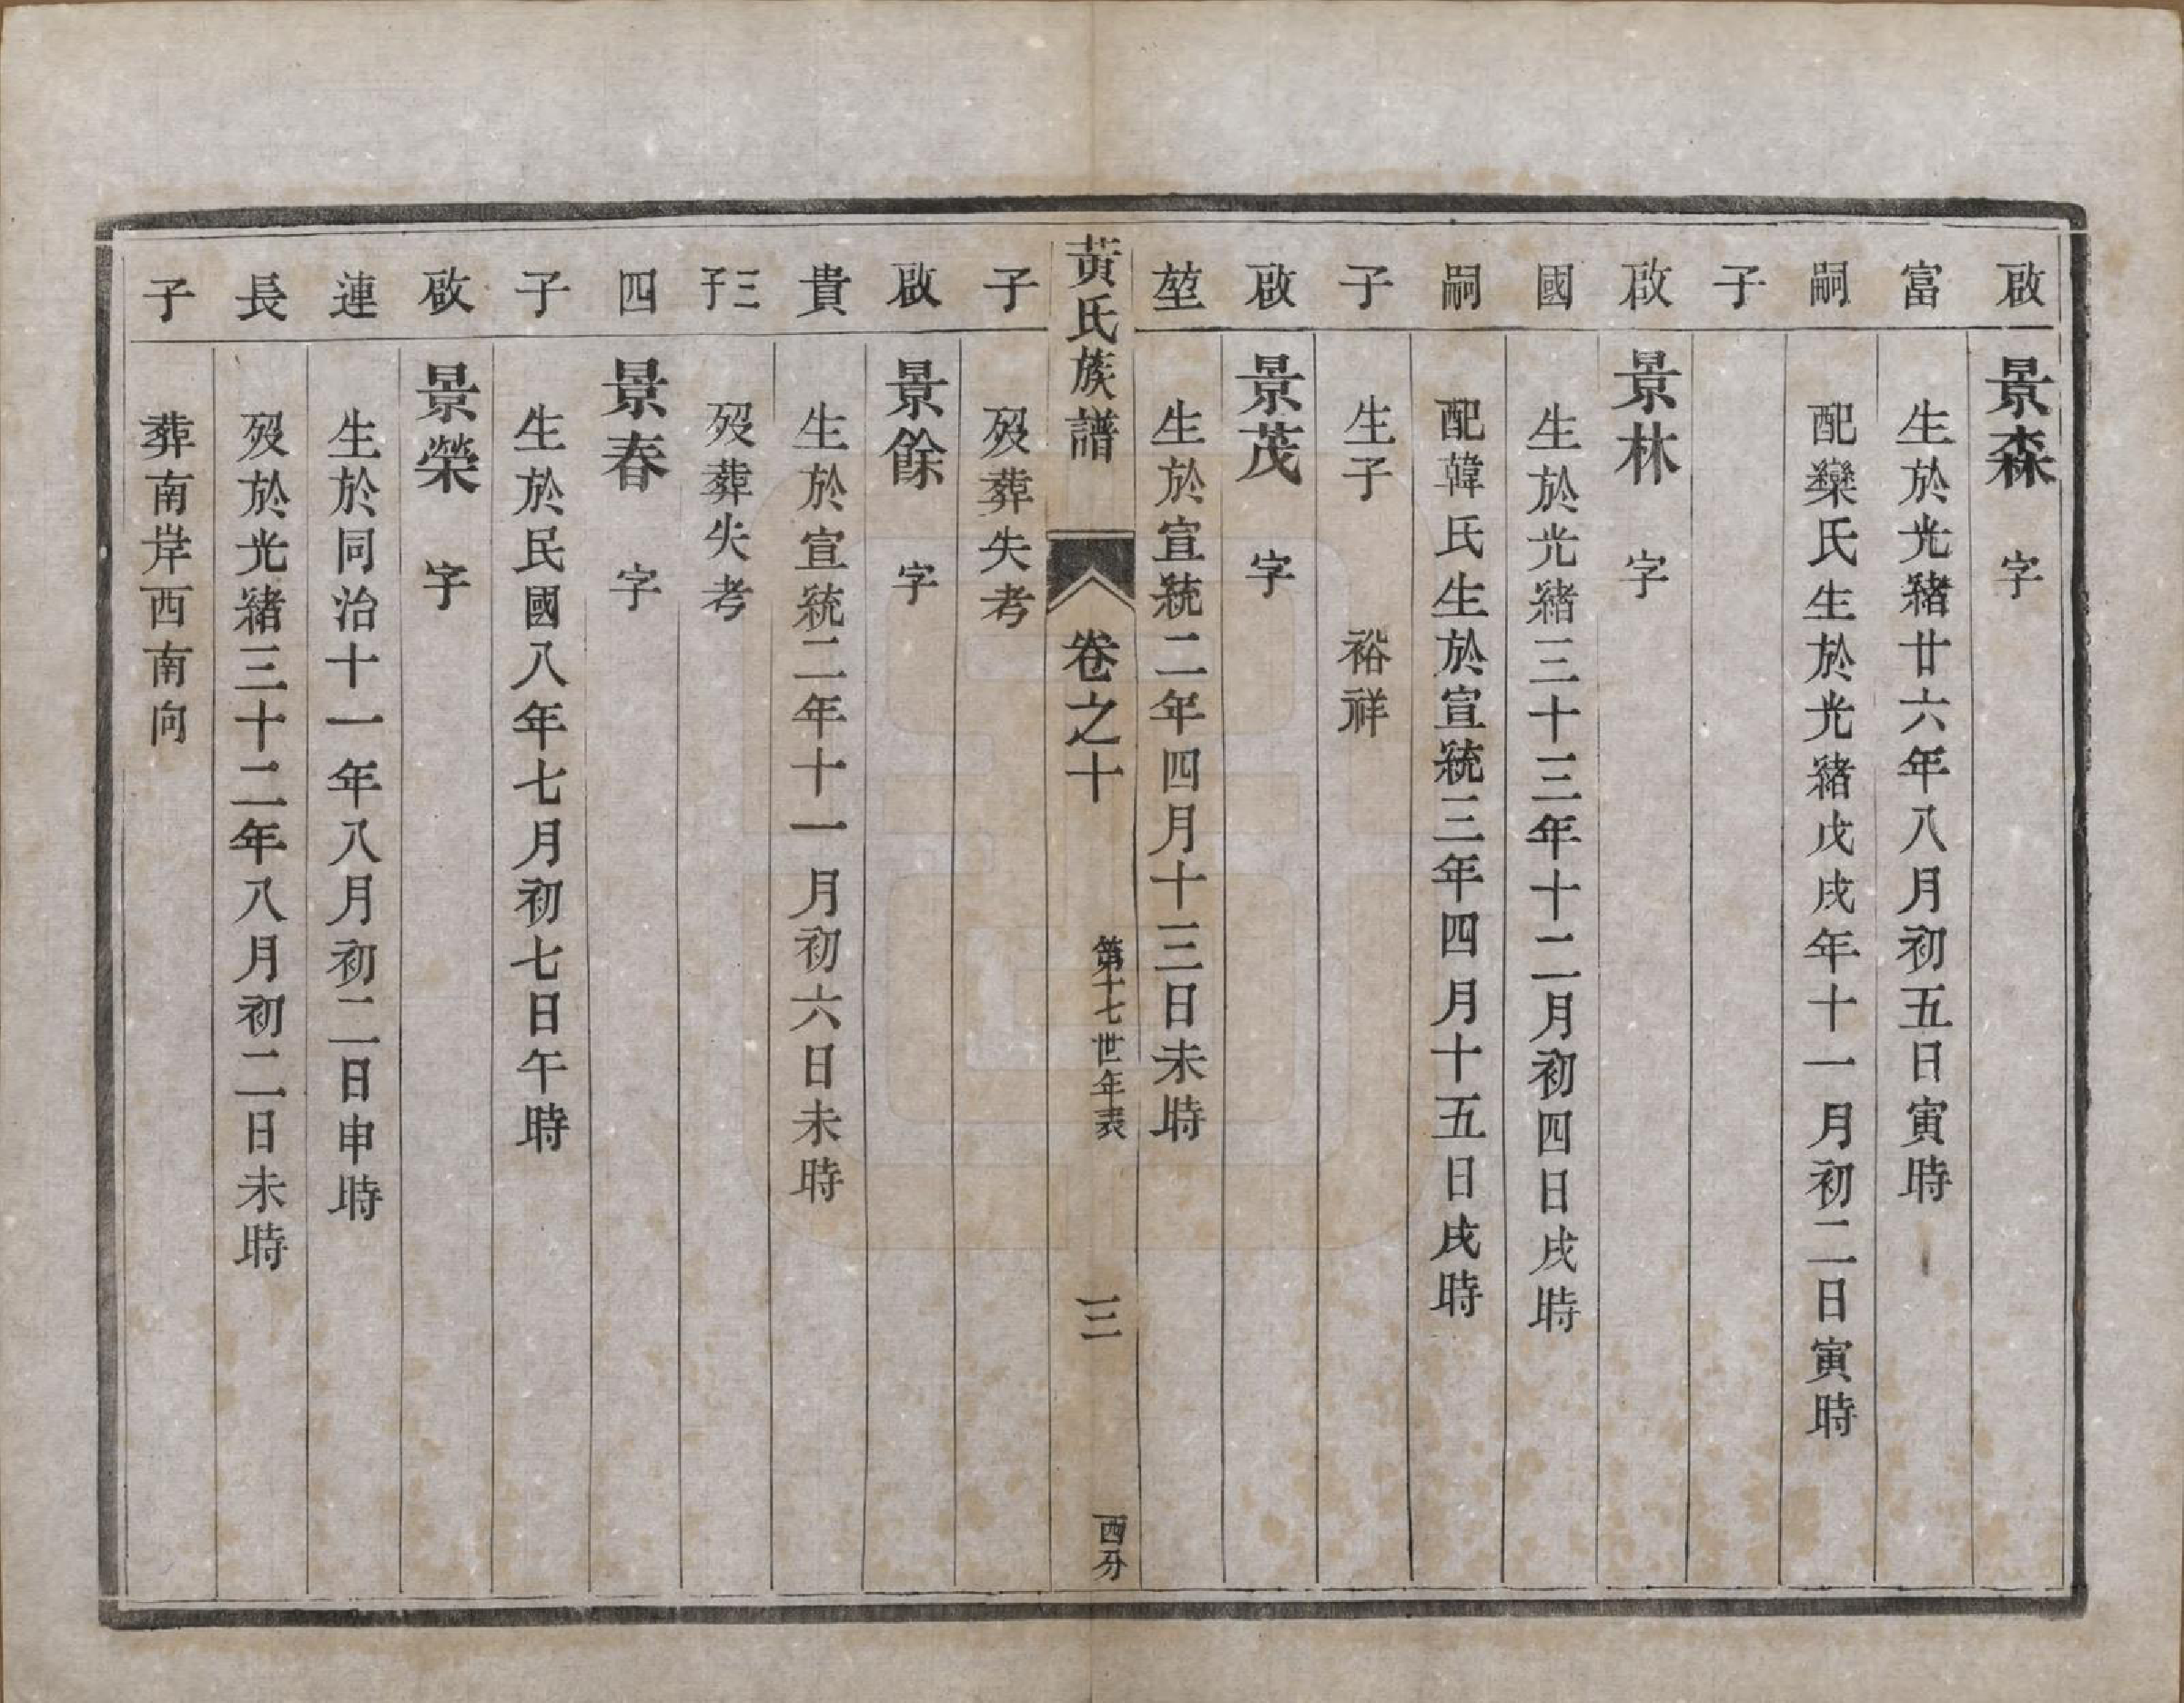 啟　景森　字
富　生於光緒廿六年八月初五日寅時
嗣　配欒氏生於光緒戊戌年十一月初二日寅時
子
啟　景林　字
國　生於光緒三十三年十二月初四日戌時
嗣　配韓氏生於宣統三年四月十五日戌時
子　生子　裕祥
啟　景茂　字
堃　生於宣統二年四月十三日未時
黃氏族譜　卷之十　第十七世年表　三　西分
子　歿葬失考
啟　景餘　字
貴　生於宣統二年十一月初六日未時
三子　歿葬失考
四　景春　字
子　生於民國八年七月初七日午時
啟　景榮　字
連　生於同治十一年八月初二日申時
長　歿於光緒三十二年八月初二日未時
子　葬南岸西南向